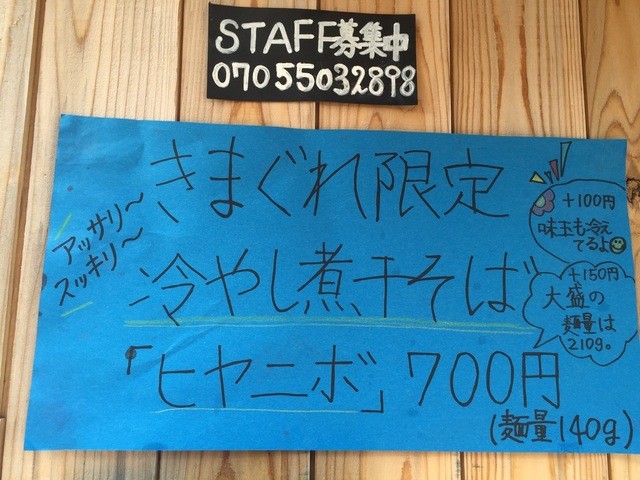 STAFF募集中
07055032898
アッサリ〜
スッキリ〜
きまぐれ限定
冷やし煮干そば
「ヒヤニボ」700円
(麺量140g)
+100円
味玉も冷え
てるよ
+150円
大盛の
麺量は
210g。